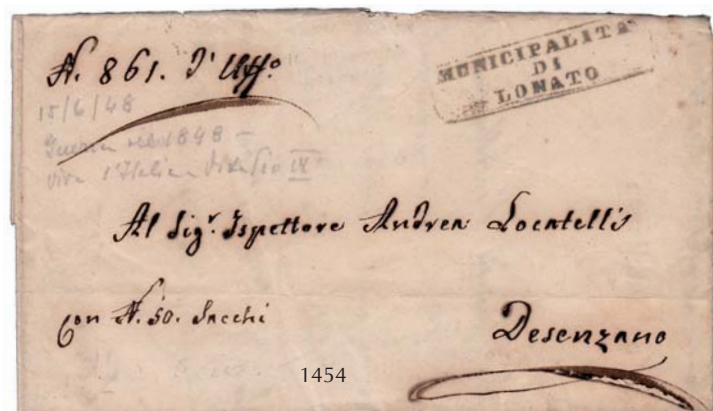 N. 861. d'Uffo.
MUNICIPALITA
DI
LONATO
15/6/48
Guerra del 1848 -
viva l'Italia Pio IX
Al Sigr. Ispettore Andrea Locatelli
con N. 50. Sacchi
Desenzano
1454